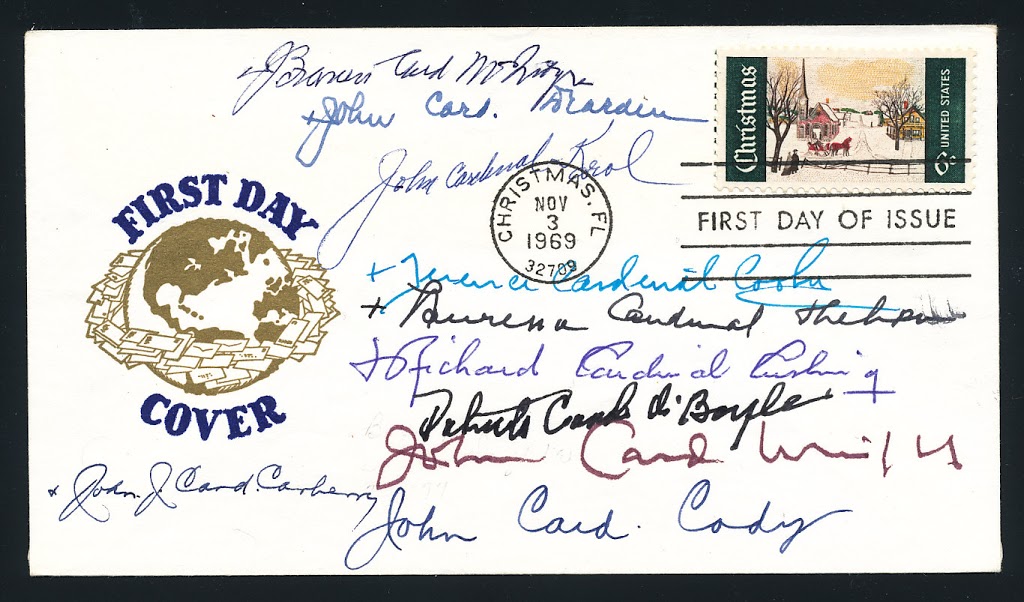 + J Francis Card McIntyre
+ John Card. Dearden
John Cardinal Krol
Christmas
6c UNITED STATES
CHRISTMAS, FL
NOV
3
1969
32709
FIRST DAY OF ISSUE
FIRST DAY
COVER
+ Terence Cardinal Cooke
+ Lawrence Cardinal Shehan
+ Richard Cardinal Cushing
Card
John Card Wright
+ John J. Card. Carberry
John Card. Cody